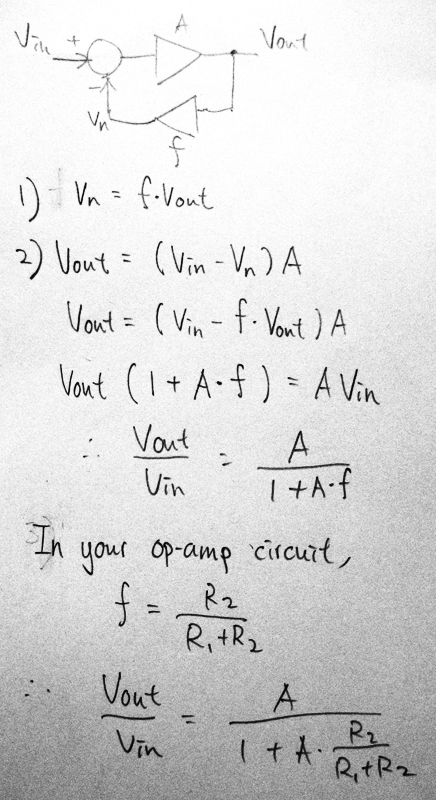 A
Vin + Vout
-
Vn
f
1) Vn = f·Vout
2) Vout = (Vin - Vn) A
Vout = (Vin - f·Vout) A
Vout (1 + A·f) = A Vin
∴ Vout/Vin = A/(1 + A·f)
In your op-amp circuit,
f = R2/(R1+R2)
∴ Vout/Vin = A/(1 + A·R2/(R1+R2))